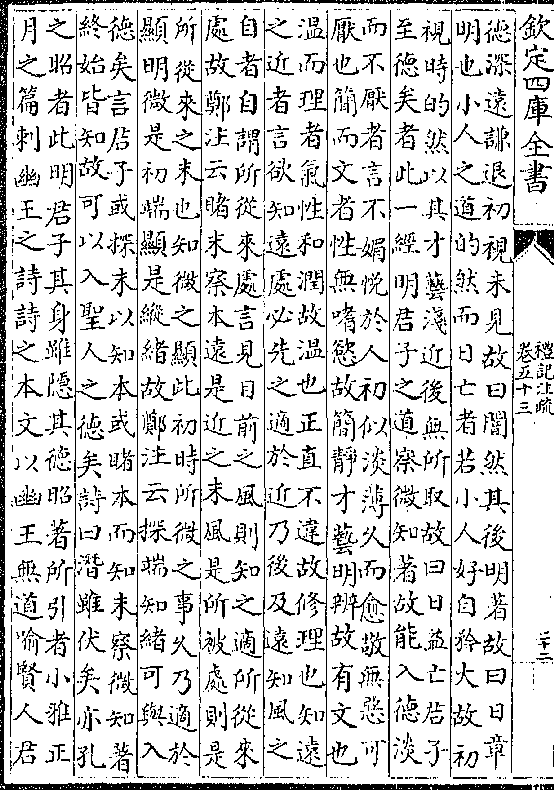 欽定四庫全書
禮記注疏
卷五十三
二十二
德深遠謙退初視未見故曰闇然其後明著故曰日章
明也小人之道的然而日亡者若小人好自矜大故初
視時的然以其才藝淺近後無所取故曰日益亡君子
至德矣者此一經明君子之道察微知著故能入德淡
而不厭者言不媚悅於人初似淡薄久而愈敬無惡可
厭也簡而文者性無嗜慾故簡靜才藝明辨故有文也
溫而理者氣性和潤故溫也正直不違故修理也知遠
之近者言欲知遠處必先之適於近乃後及遠知風之
自者自謂所從來處言見目前之風則知之適所從來
處故鄭注云睹末察本遠是近之末風是所被處則是
所從來之末也知微之顯此初時所微之事久乃適於
顯明微是初端顯是縱緒故鄭注云探端知緒可與入
德矣言君子或探末以知本或睹本而知末察微知著
終始皆知故可以入聖人之德矣詩曰潛雖伏矣亦孔
之昭者此明君子其身雖隱其德昭著所引者小雅正
月之篇刺幽王之詩詩之本文以幽王無道喻賢人君